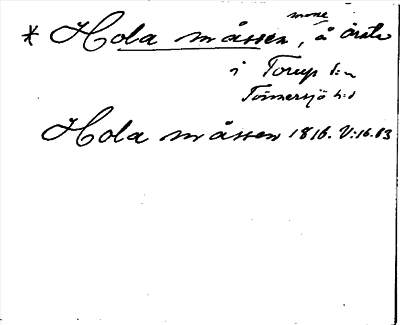 * Hola måssen, mosse, å Årsta
i Torup s:n
Tönnersjö h:d
Hola måssen 1816. V:16.83